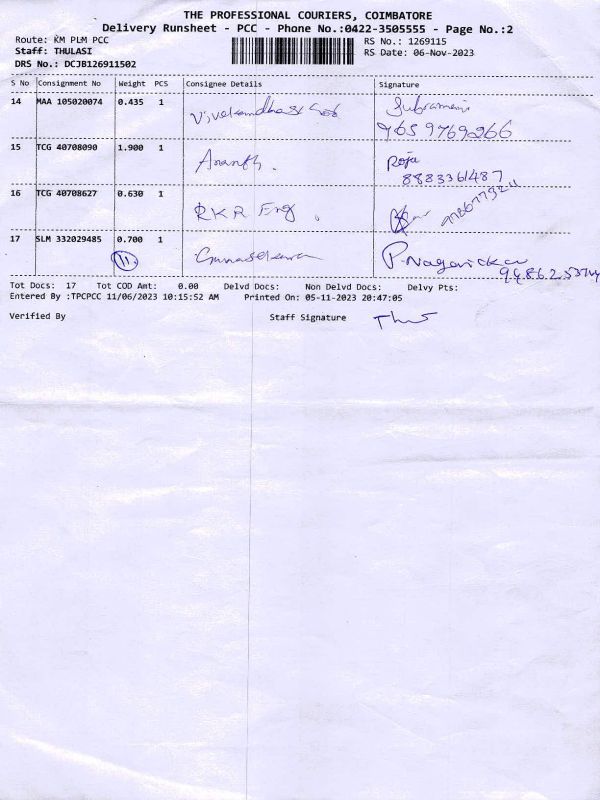 THE PROFESSIONAL COURIERS, COIMBATORE
Delivery Runsheet - PCC - Phone No.:0422-3505555 - Page No.:2
Route: KM PLM PCC
RS No.: 1269115
Staff: THULASI
RS Date: 06-Nov-2023
DRS No.: DCJB126911502
S No Consignment No Weight PCS Consignee Details Signature
14 MAA 105020074 0.435 1
9659769266
15 TCG 40708090 1.900 1 Ananth. Roja
8883361487
16 TCG 40708627 0.630 1 RKR Eng.
17 SLM 332029485 0.700 1 P. Nagarickar
11
Tot Docs: 17 Tot COD Amt: 0.00 Delvd Docs: Non Delvd Docs: Delvy Pts:
Entered By :TPCPCC 11/06/2023 10:15:52 AM Printed On: 05-11-2023 20:47:05
Verified By Staff Signature